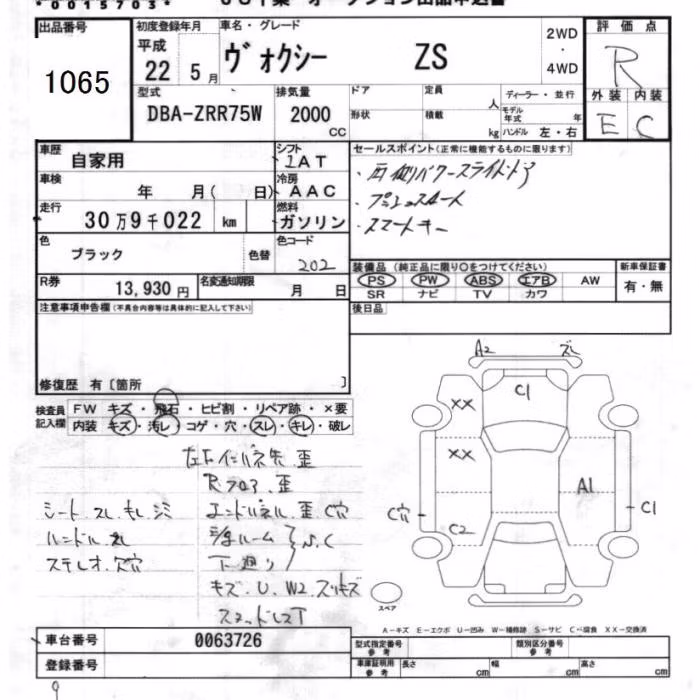 *0015703*
出品番号
1065
初度登録年月
平成
22 5月
車名・グレード
ヴォクシー ZS
2WD
・
4WD
評価点
R
外装 内装
E C
型式
DBA-ZRR75W
排気量
2000
cc
ドア
定員
人
形状
積載
kg
ディーラー・並行
モデル年式
年
ハンドル 左・右
車歴
自家用
シフト
AT
車検
年 月( 日)
冷房
AAC
走行
30万9千022 km
燃料
ガソリン
色
ブラック
色替
色コード
202
R券
13,930円
名変通知期限
月 日
セールスポイント(正常に機能するものに限ります)
・両側パワースライドドア
・プッシュスタート
・スマートキー
装備品(純正品に限り○をつけてください)
PS PW ABS エアB AW
SR ナビ TV カワ
新車保証書
有・無
後日品
注意事項申告欄(不具合内容等は具体的に記入して下さい)
修復歴 有〔箇所 〕
検査員記入欄
FW キズ・飛石・ヒビ割・リペア跡・×要
内装 キズ・汚レ・コゲ・穴・スレ・キレ・破レ
左F インパネ先 歪
Rフロア 歪
エンドパネル 歪 C穴
シート スレ キレ シミ
ハンドル スレ
ステレオ 欠穴
ルーム
下廻り
S、C
キズ U W2 スリキズ
スタッドレスT
A2
スレ
C1
XX
XX
A1
C穴
C1
C2
スペア
A-キズ E-エクボ U-凹み W-補修跡 S-サビ C-腐食 XX-交換済
車台番号
0063726
登録番号
型式指定番号
参考
類別区分番号
参考
車庫証明用
参考
長さ
cm
幅
cm
高さ
cm